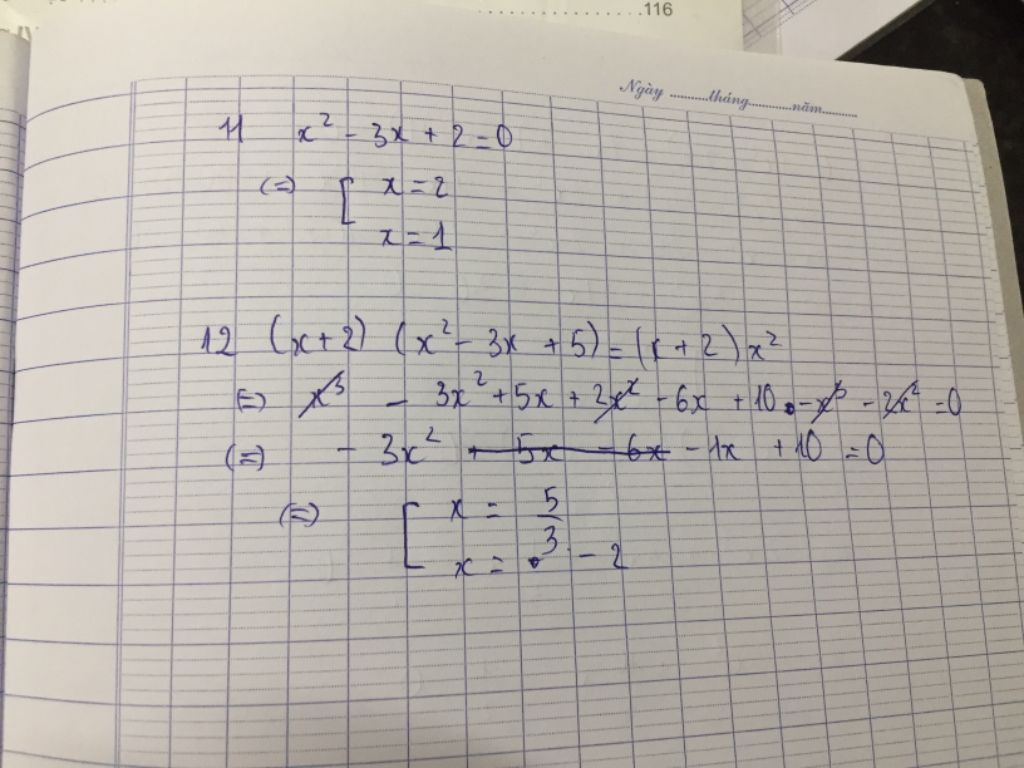 116
Ngày ..........tháng..........năm..........
11 x² - 3x + 2 = 0
(=) [ x = 2
x = 1
12 (x+2) (x² - 3x + 5) = (x + 2) x²
(=) x³ - 3x² + 5x + 2x² - 6x + 10 - x³ - 2x² = 0
(=) - 3x² + 5x - 6x - 1x + 10 = 0
(=) [ x = 5/3
x = - 2